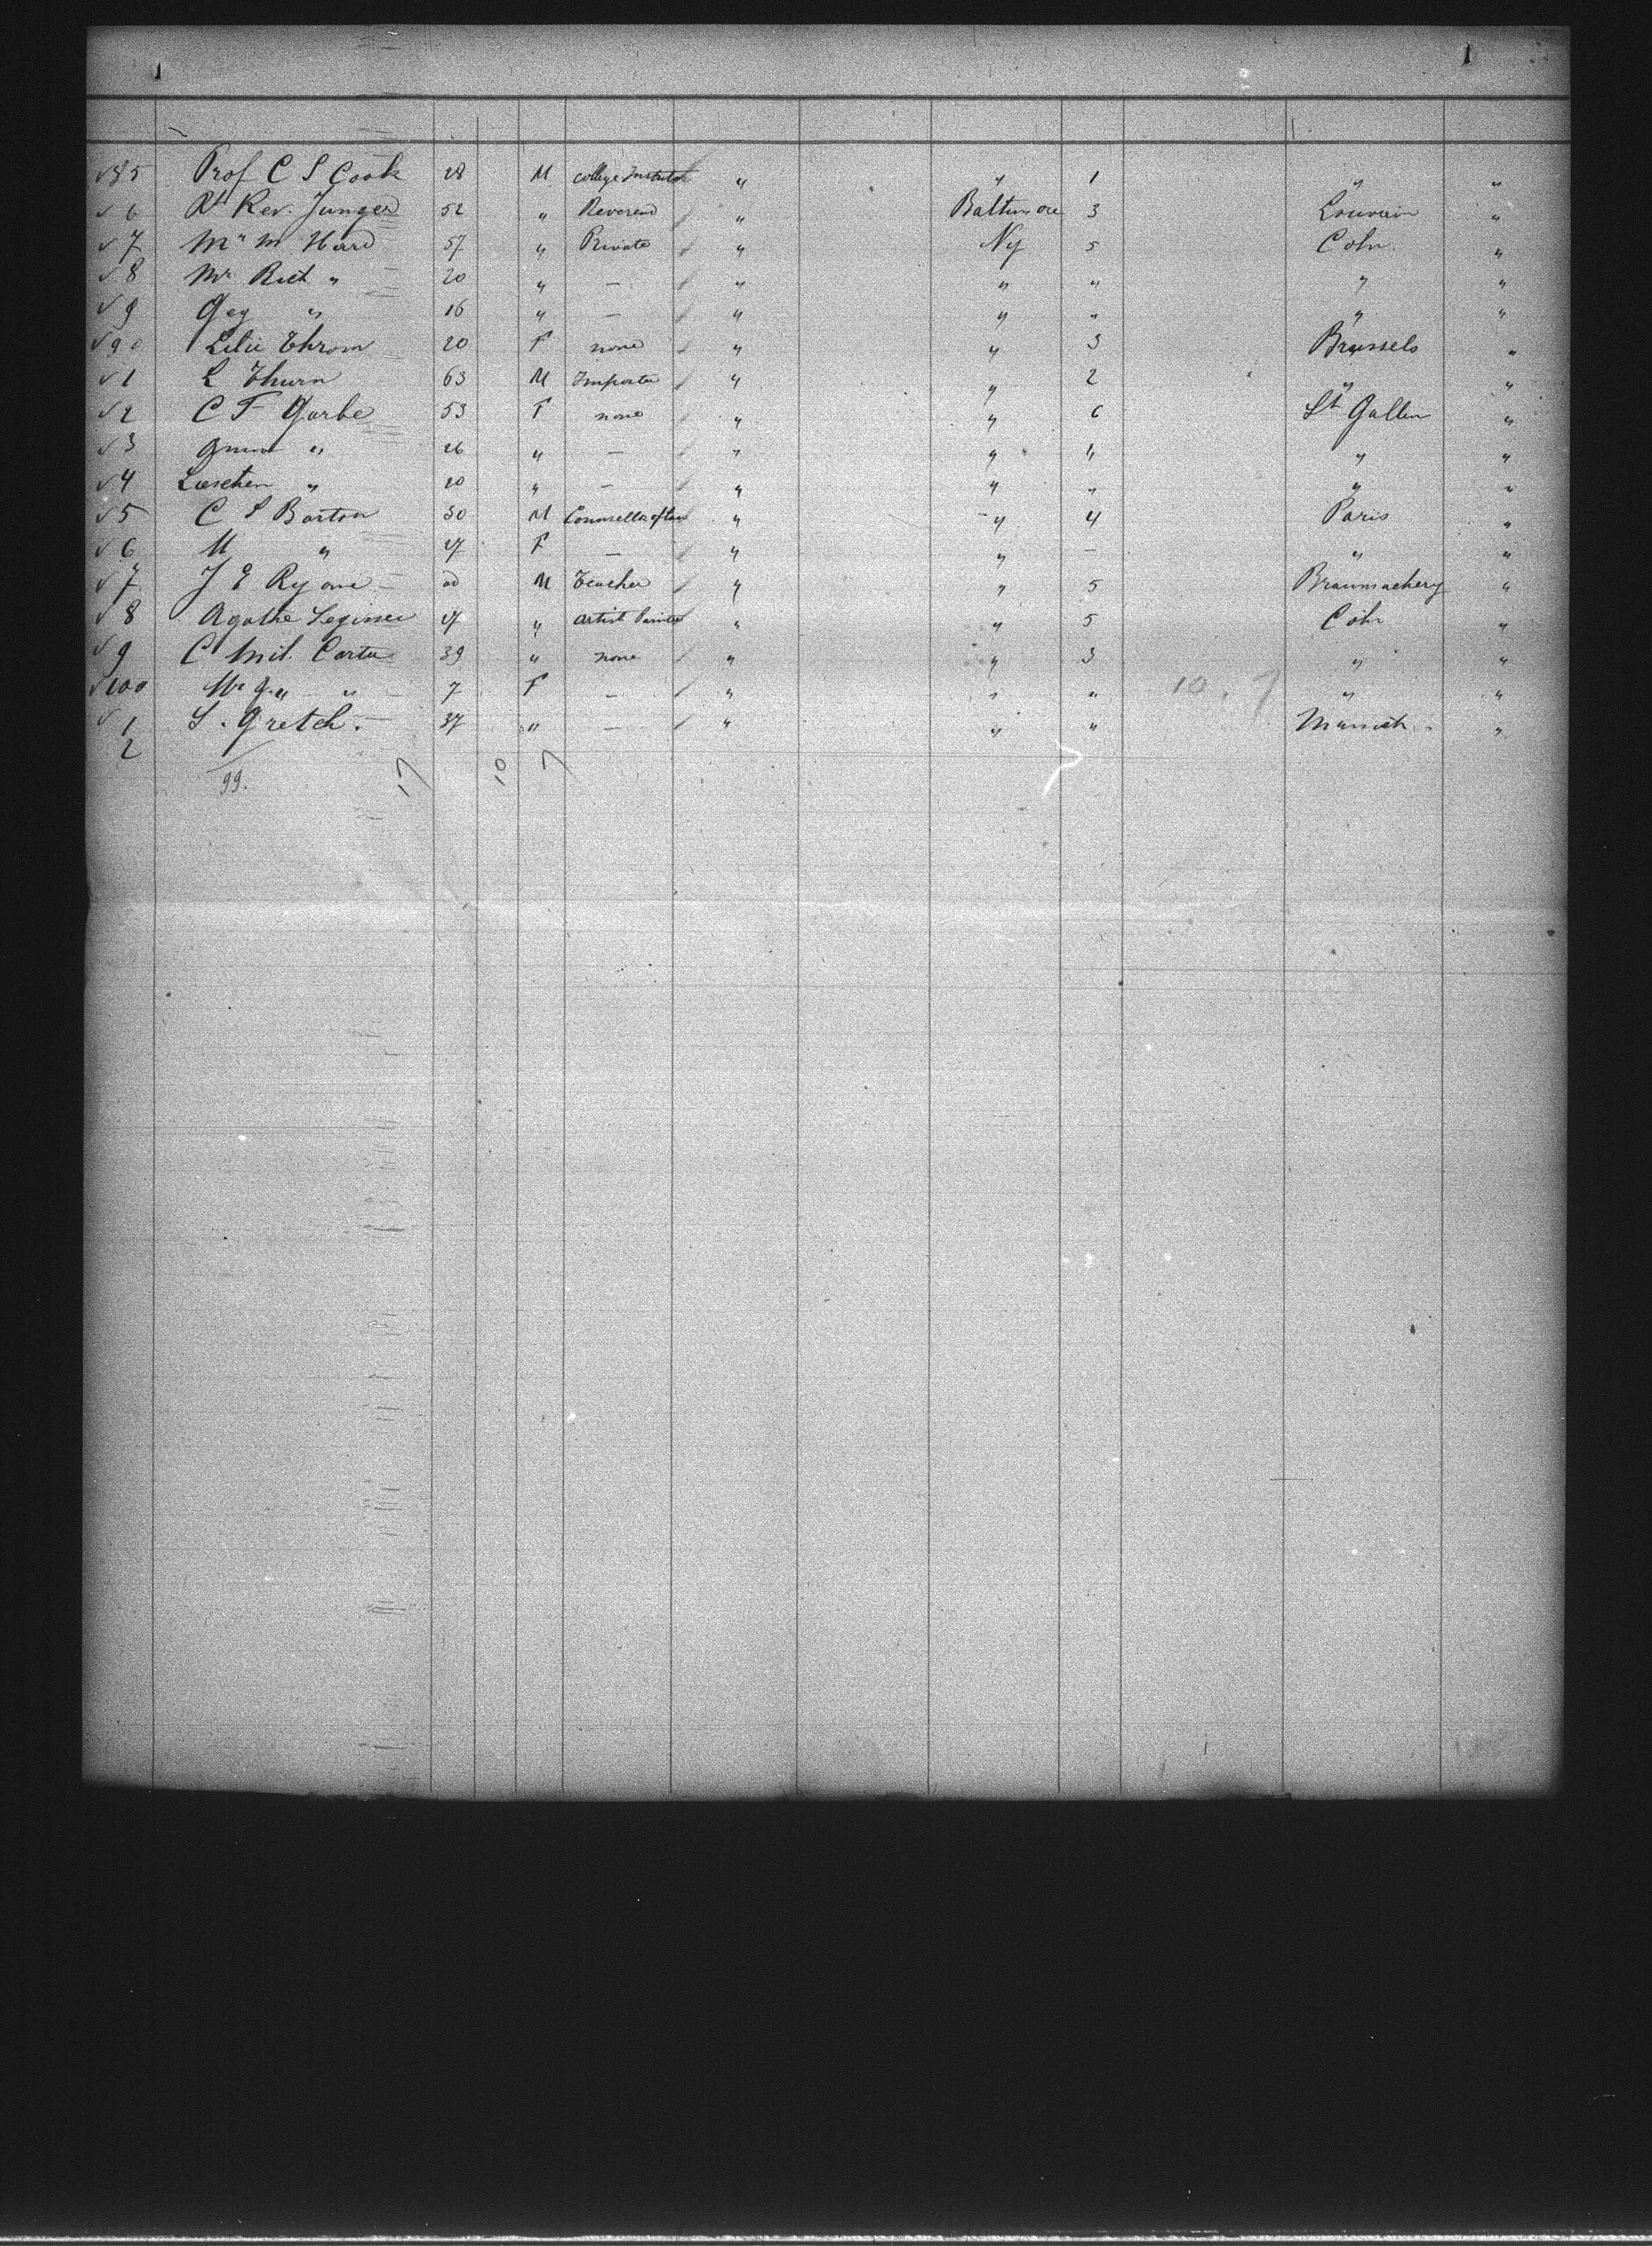 85 Prof C S Cook 28 M College Instutor " " 1 " "
6 Rt Rev. Junger 52 " Reverend " Baltimore 3 Louvain "
7 Mr M Hard 57 " Private " Ny 5 Coln "
8 Mr Rich " 20 " — " " " " "
9 Geg " 16 " — " " " " "
90 Lilie Throm 20 F none " " 3 Brussels "
1 L Thurn 63 M Importer " " 2 " "
2 C F Garbe 53 F none " " 6 St Gallen "
3 " 26 " — " " " " "
4 " 20 " — " " " " "
5 C S Barton 30 M Counsellor of Law " " 4 Paris "
6 M " 27 F — " " — " "
7 J E Ryane M Teacher " " 5 "
8 Agathe 27 " Artist Painter " " 5 Cöln "
9 C Mil. Carter 39 " none " " 3 " "
100 " " 7 F — " " " 10. 7 " "
1 S. Gretch. 37 " — " " " Munich "
2
99. 17 10 7